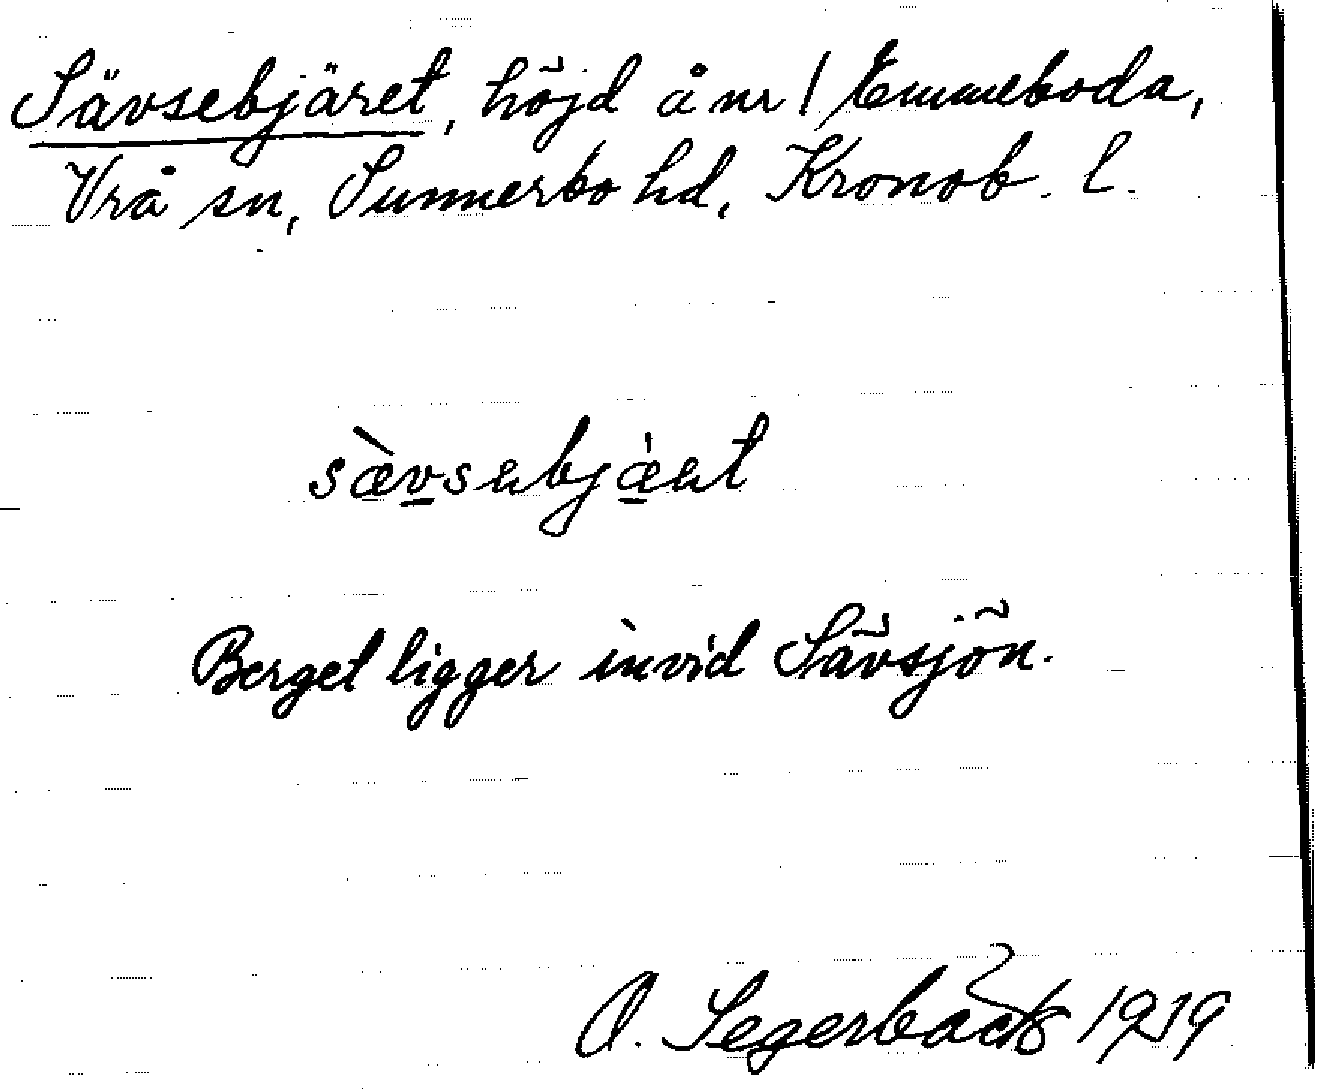 Sävsebjäret, höjd å nr 1 Emmeboda,
Vrå sn, Sunnerbo hd, Kronob. l.
Berget ligger invid Sävsjön.
O. Segerbäck 1939